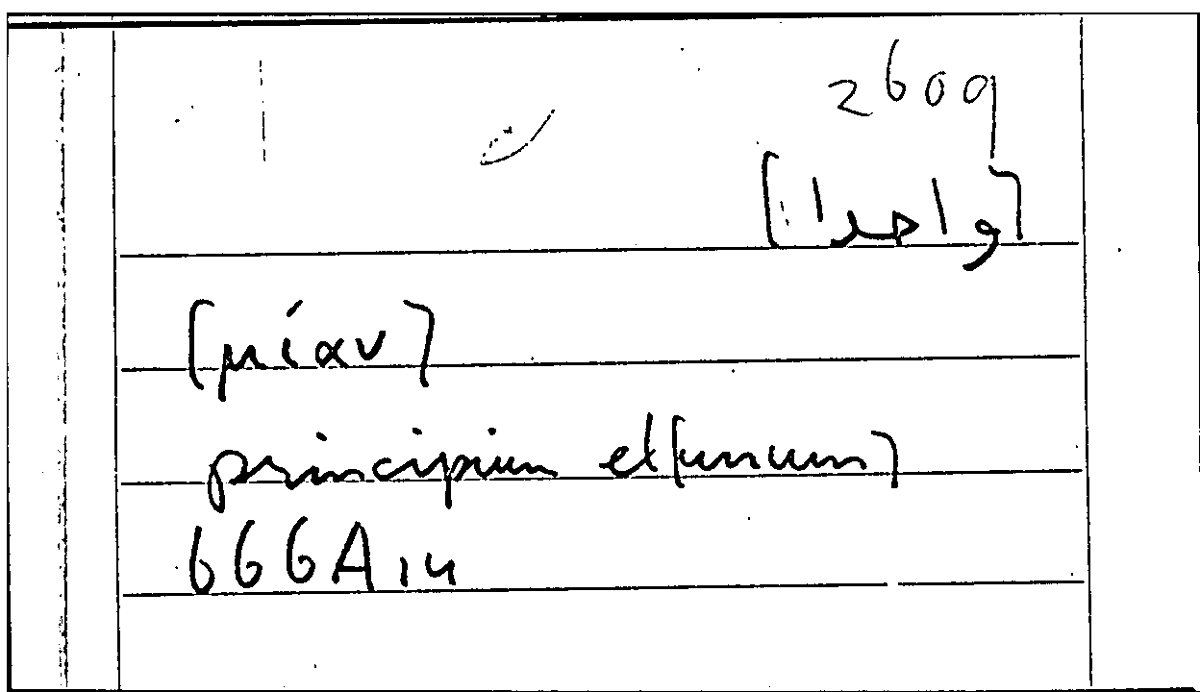 2609
[واحدا]
[μίαν]
principium et [unum]
666A14